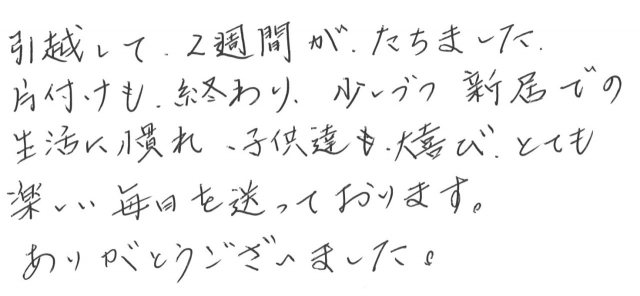 引越して、2週間が、たちました、
片付けも、終わり、少しづつ新居での
生活に慣れ、子供達も、大喜び、とても
楽しい毎日を送っております。
ありがとうございました。